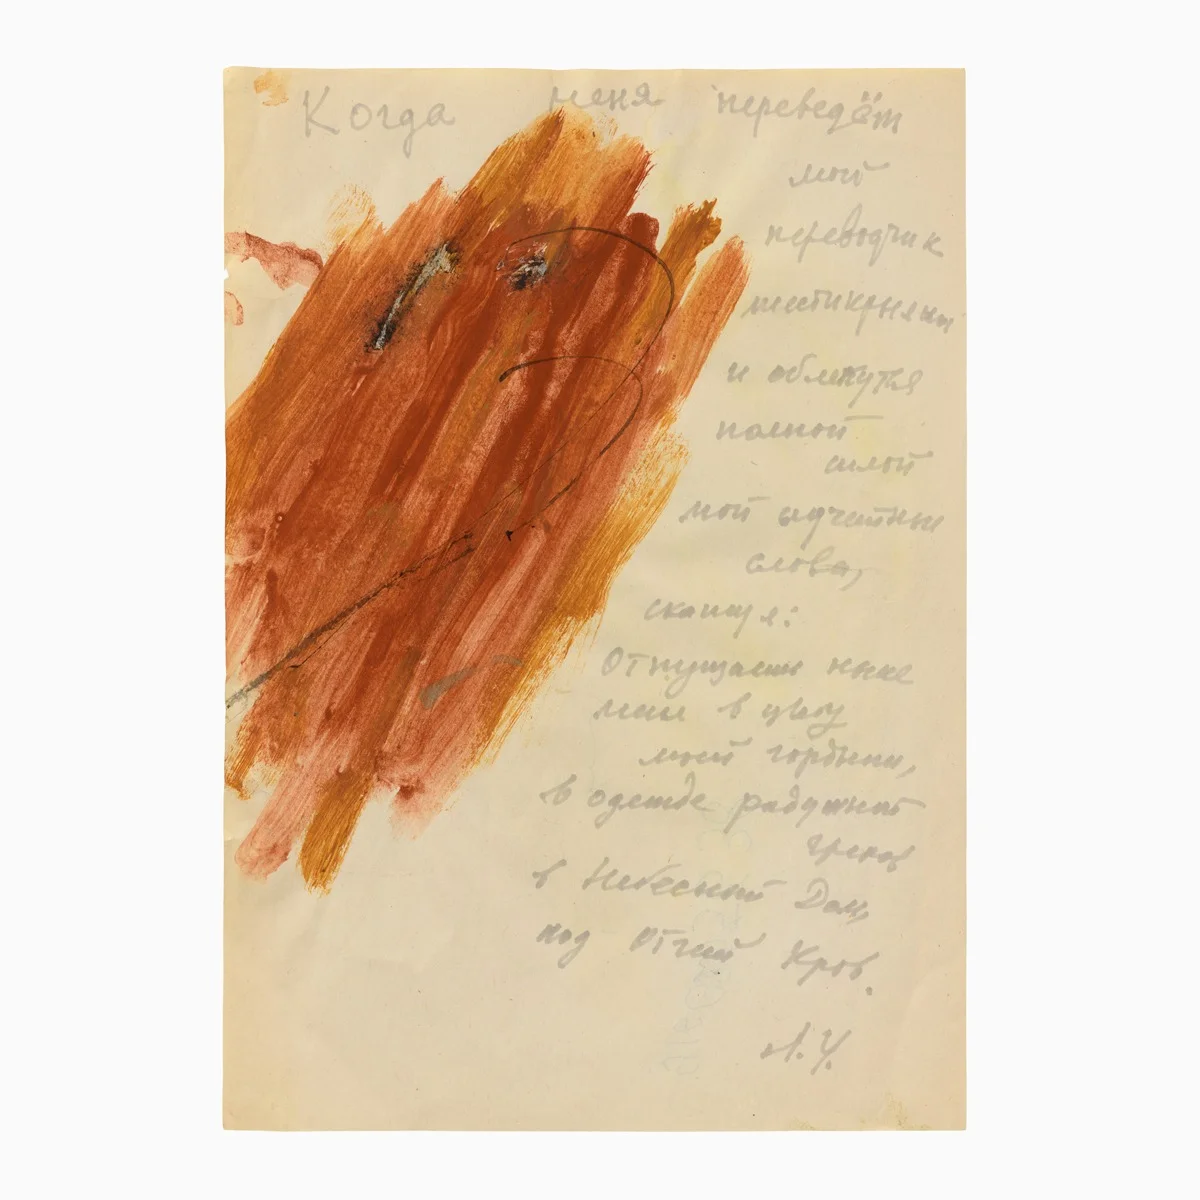 Когда меня переведёт
мой
переводчик
шестикрылый
и облекутся
полной
силой
мои
слова,
скажу я:
Отпущаеши ныне
мене в цвету
моей гордыни,
в одежде радужной
грехов
в Небесный Дом,
под Отчий Кров.
А.У.